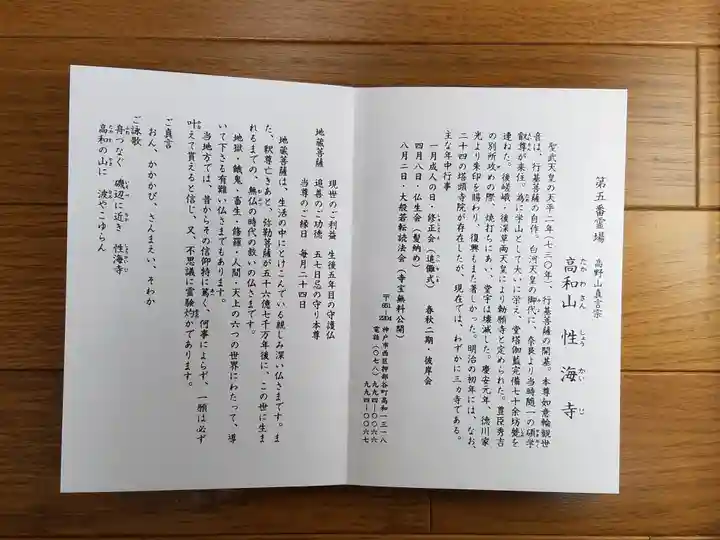 第五番霊場
高野山真言宗
高和山 性海寺
たかわさん しょうかいじ
聖武天皇の天平二年(七三〇年)、行基菩薩の開基。本尊如意輪観世
音は、行基菩薩の自作。白河天皇の御代に、奈良より当時随一の碩学
叡尊が来住。為に学山として大いに栄え、堂塔伽藍完備七十余坊甍を
連ねた。後嵯峨・後深草両天皇により勅願寺と定められた。豊臣秀吉
の別所攻めの際、焼打ちにあい、堂宇は壊滅した。慶安元年、徳川家
光より朱印を賜わり、復興もまた著しかった。明治の初年には、なお、
二十四の塔頭寺院が存在したが、現在では、わずかに三ヵ寺である。
主な年中行事
一月成人の日・修正会(追儺式) 春秋二期・彼岸会
四月八日・仏生会(髪納め)
八月二日・大般若転読法会(寺宝無料公開)
〒651-2204 神戸市西区押部谷町高和一三一八
電話(〇七八)九九四-〇〇六六
九九四-〇〇六七
現世のご利益 生後五年目の守護仏
地蔵菩薩 追善のご功徳 五七日忌の守り本尊
当尊のご縁日 毎月二十四日
地蔵菩薩は、生活の中にとけこんでいる親しみ深い仏さまです。ま
た、釈尊亡きあと、弥勒菩薩が五十六億七千万年後に、この世に生ま
れるまでの、無仏の時代の救いの仏さまです。
地獄・餓鬼・畜生・修羅・人間・天上の六つの世界にわたって、導
いて下さる有難い仏さまでもあります。
当地方では、昔からその信仰特に篤く、何事によらず、一願は必ず
叶えて貰えると信じ、又、不思議に霊験灼かであります。
ご真言
おん、かかかび、さんまえい、そわか
ご詠歌
舟つなぐ 磯辺に近き 性海寺
高和の山に 波やこゆらん